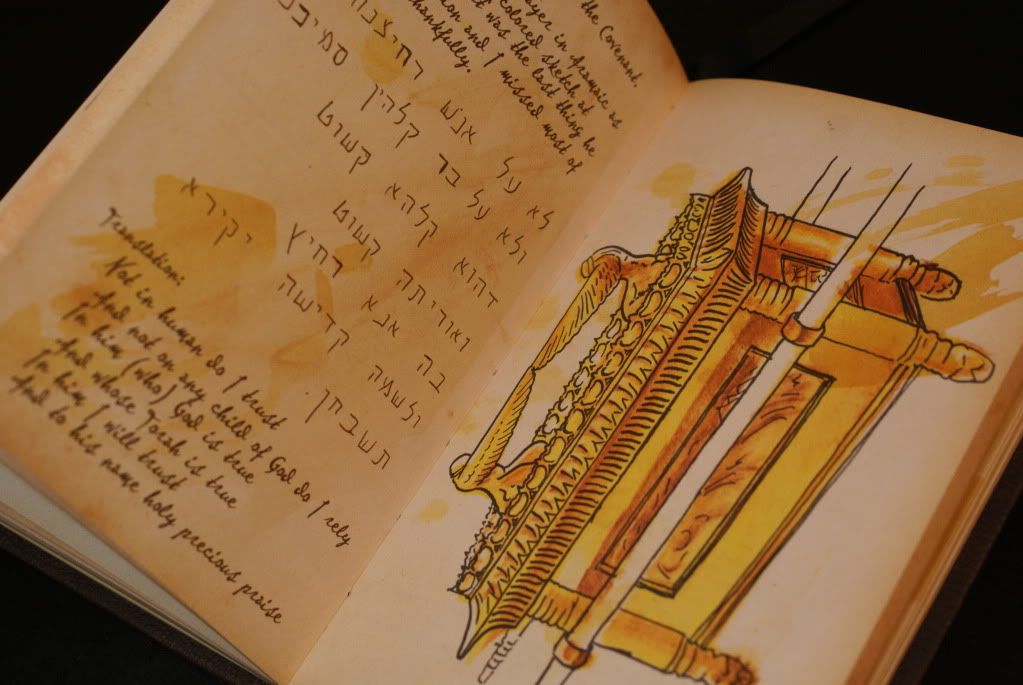 the Covenant.
in Aramaic as
colored sketch at
was the last thing he
and I missed most of
thankfully.
לא על אנש
ולא על בר קלהין
דהוא קלהא קשוט
ואוריתה קשוט
בה אנא רחיץ
ולשמה קדישה יקירא
תשבחן.
Translation:
Not in human do I trust
And not on any child of God do I rely
In him (who) God is true
And whose Torah is true
In him, I will trust
And to his name holy precious praise